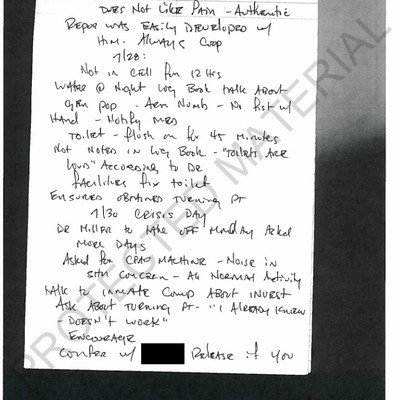 Does Not Like Pain - Authentic
Rapor was Easily Developed w/
Him. Always Coop
7/28:
Not in Cell for 12 Hrs
Water @ Night Log Book talk About
Gen pop. Arm Numb - No fist w/
Hand - Notify Med
Toilet - flush on for 45 minutes
Not Noted in Log Book - "Toilets Are
Loud" According to DE
facilities fix toilet
Ensured obtained Turning Pt
7/30 Crisis Day
Dr Miller to take off Monday Asked
More Days
Asked for CPAP Machine - Noise in
SHU Concern - All Normal Activity
talk to inmate Comp About invest
Ask About Turning Pt - "I Already Knew
- Doesn't work"
Encourage
Confer w/ Release if you
PROTECTED MATERIAL